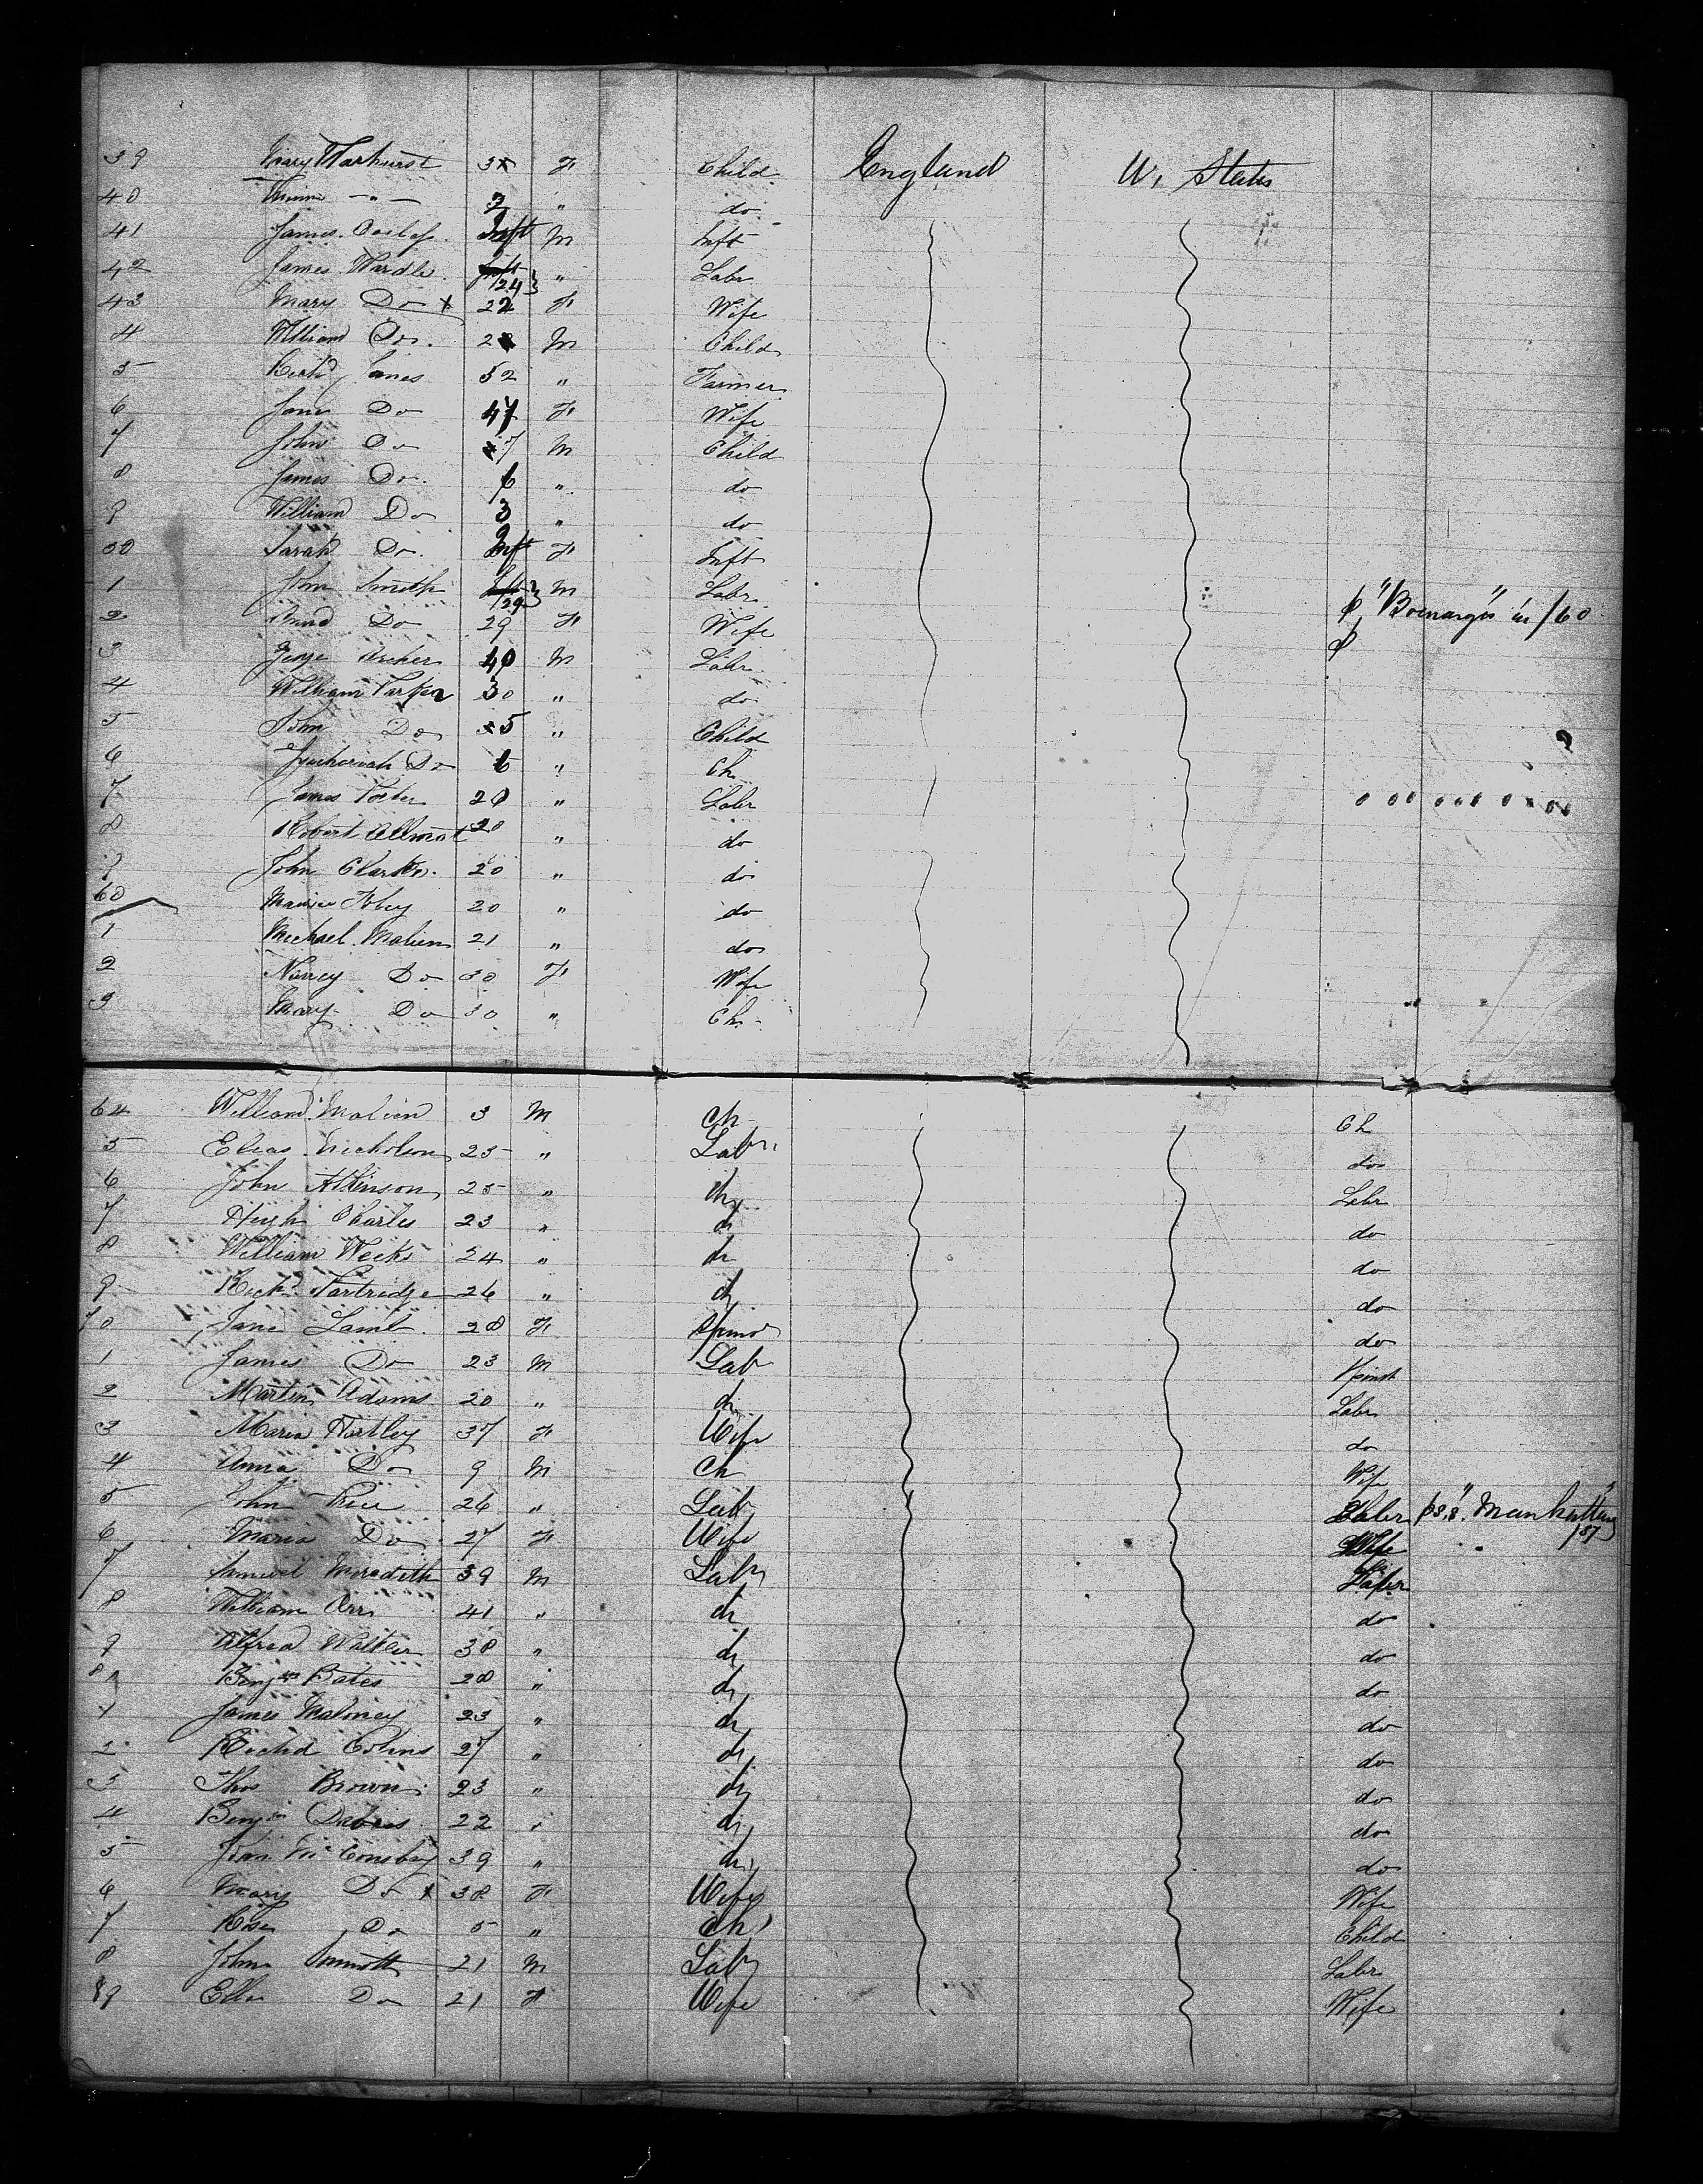 39 Mary Warhurst 3 F Child England U. States
40 Minnie — " — 3 " do
41 James Inft M Inft
42 James Wardle 24 " Labr
43 Mary Do x 22 F Wife
4 William Do. 2 M Child
5 Richd Jones 52 " Farmer
6 Jane Do 47 F Wife
7 John Do 7 M Child
8 James Do. 6 " do
9 William Do 3 " do
50 Sarah Do. Inft F Inft
1 John Smith 29 M Labr p "Boenarges" in /60
2 Do 29 F Wife
3 George Archer 40 M Labr
4 William Parker 30 " do
5 John Do 5 " Child
6 Do 6 " Ch
7 James 20 " Labr
8 Robert 20 " do
9 John Clark 20 " do
60 Maurice 20 " do
1 Michael Malien 21 " do
2 Nancy Do 30 F Wife
3 Mary Do 30 " Ch
64 William Malien 3 M Ch Ch
5 Elias Nicholson 25 " Labr. do
6 John Atkinson 25 " do Labr
7 Hugh Charles 23 " do do
8 William Weeks 24 " do do
9 Richd Partridge 26 " do do
70 Jane Lamb 28 F Spinst do
1 James Do 23 M Lab Spinst
2 Martin Adams 20 " do Labr
3 Maria Hartley 37 F Wife do
4 Anna Do 9 M Ch Wife
5 John Price 26 " Lab Labr p S.S. "Manhattan" /57
6 Maria Do 27 F Wife Wife
7 Samuel Meredith 39 M Labr Labr
8 William Orr 41 " do do
9 Alfred Walker 38 " do do
80 Benjn Bates 28 " do do
1 James Maloney 23 " do do
2 Richd 27 " do do
3 Thos Brown 23 " do do
4 Benjn Davies 22 " do do
5 John 39 " do do
6 Mary Do x 38 F Wife Wife
7 Rose Do 5 " Ch Child
8 John 21 M Labr Labr
89 Ellen Do 21 F Wife Wife